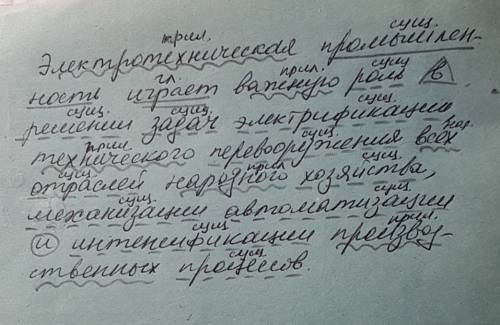 прил. сущ.
Электротехническая промышлен-
гл. прил. сущ
ность играет важную роль в
сущ. сущ. сущ.
решении задач электрификации
прил сущ.
технического перевооружения всех
сущ. прил сущ.
отраслей народного хозяйства,
сущ. сущ.
механизации автоматизации
сущ прил.
и интенсификации производ-
сущ.
ственных процессов.